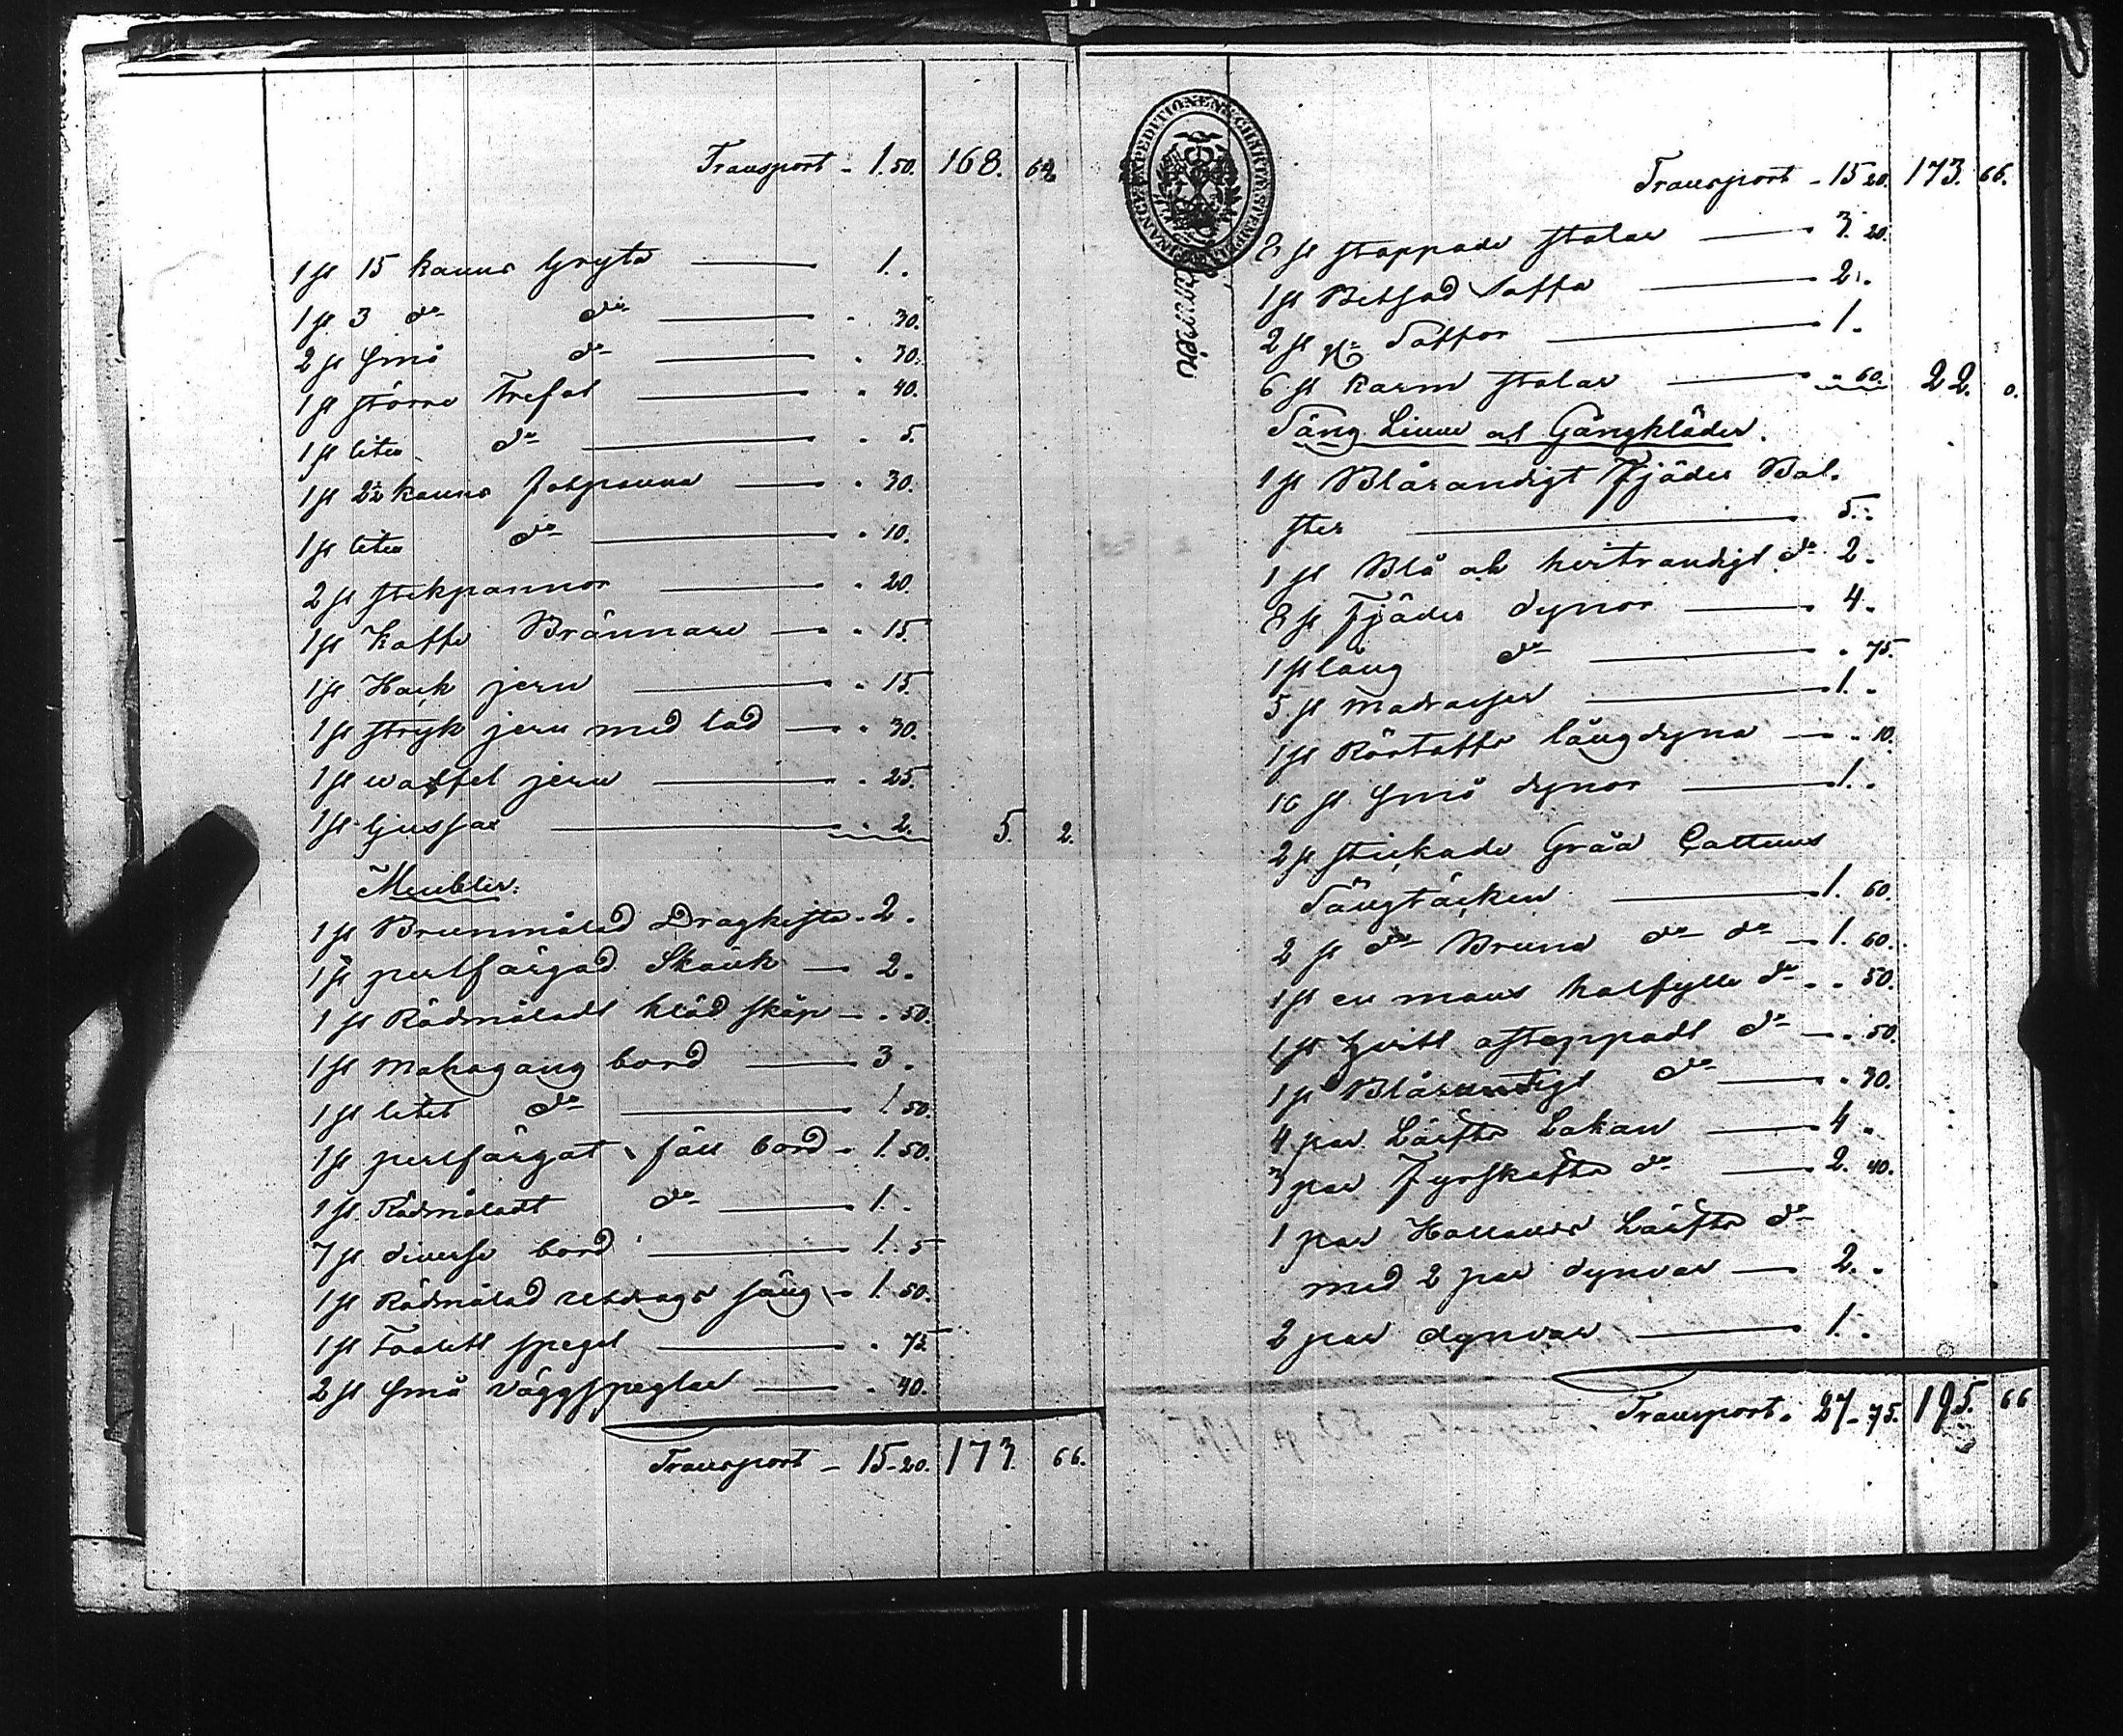 Transport - 1. 50. 168. 64
1 st 15 kanns Gryta 1. .
1 st 3 do do . 30.
2 st små do . 30.
1 st större Trefot . 40.
1 st liten do . 5.
1 st 2½ kanns panna . 30.
1 st liten do . 10.
2 st stekpannor . 20.
1 st Kaffe Brännare . 15.
1 st Hack jern . 15
1 st stryk jern med lod . 30.
1 st waffel jern . 25.
1 st ljussax . 2. 5. 2.
Meubler.
1 st Brunmålad Dragkista . 2 .
1 st perlfärgad Skänk 2 .
1 st Rödmåladt kläd skåp . 50.
1 st mahagany bord 3 .
1 st litet do 1. 50.
1 st perlfärgat fäll bord . 1. 50.
1 st. Rödmåladt do 1. .
7 st. diverse bord 1. 5
1 st Rödmålad utdrags säng 1. 50.
1 st Toalett spegel . 75.
2 st små väggspeglar . 40.
Transport - 15 - 20. 173. 66.
FINANCE EXPEDITIONENS CHARTÆ
Transport - 15 20. 173. 66.
8 st stoppade stolar 3. 20.
1 st Betsad Soffa 2. .
2 st Soffor 1 .
6 st karm stolar . 60. 22. 0.
Säng Linne och Gångkläder.
1 st Blårandigt Fjäder Bol-
ster 5. .
1 st Blå och hvitrandigt do 2 .
8 st Fjäder dynor 4 .
1 st lång do . 75.
5 st madrasser 1. .
1 st långdyna . 10.
10 st små dynor 1. .
2 st stickade Gråa Cattuns
Sängtäcken 1. 60.
2 st do Bruna do do 1. 60.
1 st en mans halfylle do . . 50.
1 st hvitt do . 50.
1 st Blårandigt do . 30.
4 par Lärfts Lakan 4 .
3 par Fyrskafts do 2. 40.
1 par Hollands Lärfts do
med 2 par dynvar 2. .
2 par dynvar 1. .
Transport . 27 - 75. 195. 66